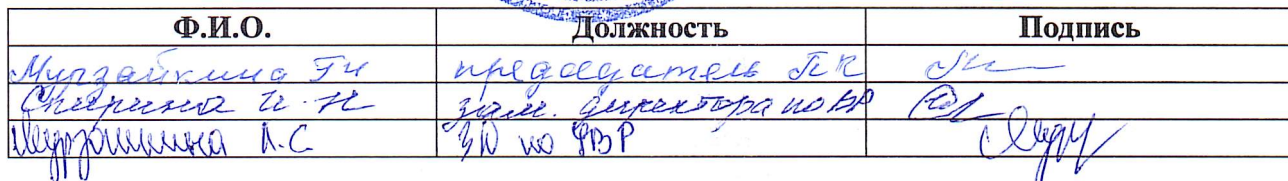 Ф.И.О. Должность Подпись
Мурзайкина Г.Н председатель ПК
Спирина И.Н зам. директора по ВР
А.С. ЗД по УВР